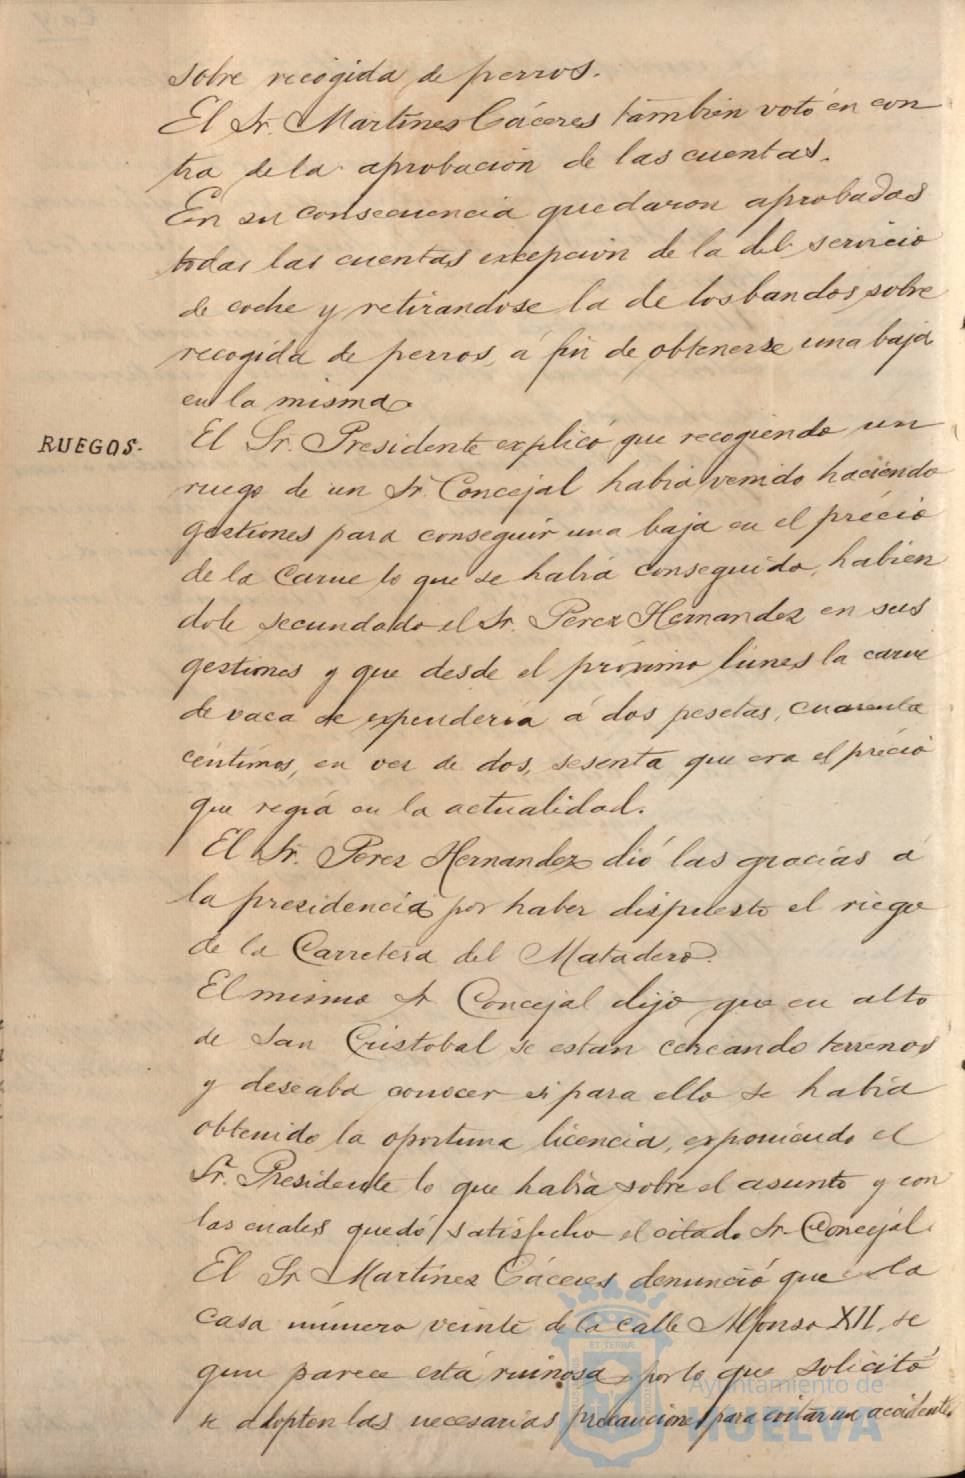 sobre recogida de perros.
El Sr. Martinez Cáceres tambien votó en con
tra de la aprobación de las cuentas.
En su consecuencia quedaron aprobadas
todas las cuentas excepcion de la del servicio
de coche y retirandose la de los bandos sobre
recogida de perros, á fin de obtenerse una baja
en la misma.
RUEGOS.
El Sr. Presidente explicó que recogiendo un
ruego de un Sr. Concejal habia venido haciendo
gestiones para conseguir una baja en el précio
de la carne lo que se habia conseguido, habien
dole secundado el Sr. Perez Hernandez en sus
gestiones y que desde el próximo lunes la carne
de vaca se expenderia á dos pesetas, cuarenta
céntimos, en vez de dos, sesenta que era el précio
que regia en la actualidad.
El Sr. Perez Hernandez dió las gracias á
la presidencia por haber dispuesto el riego
de la Carretera del Matadero.
El mismo Sr Concejal dijo que en alto
de San Cristobal se estan cercando terrenos
y deseaba conocer si para ello se habia
obtenido la oportuna licencia, exponiendo el
Sr. Presidente lo que habia sobre el asunto y con
las cuales quedó satisfecho el citado Sr. Concejal.
El Sr Martinez Cáceres denunció que la
casa número veinte de la calle Alfonso XII, se
gun parece está ruinosa por lo que solicitó
se adopten las necesarias precauciones para evitar un accidente.
Ayuntamiento de
HUELVA